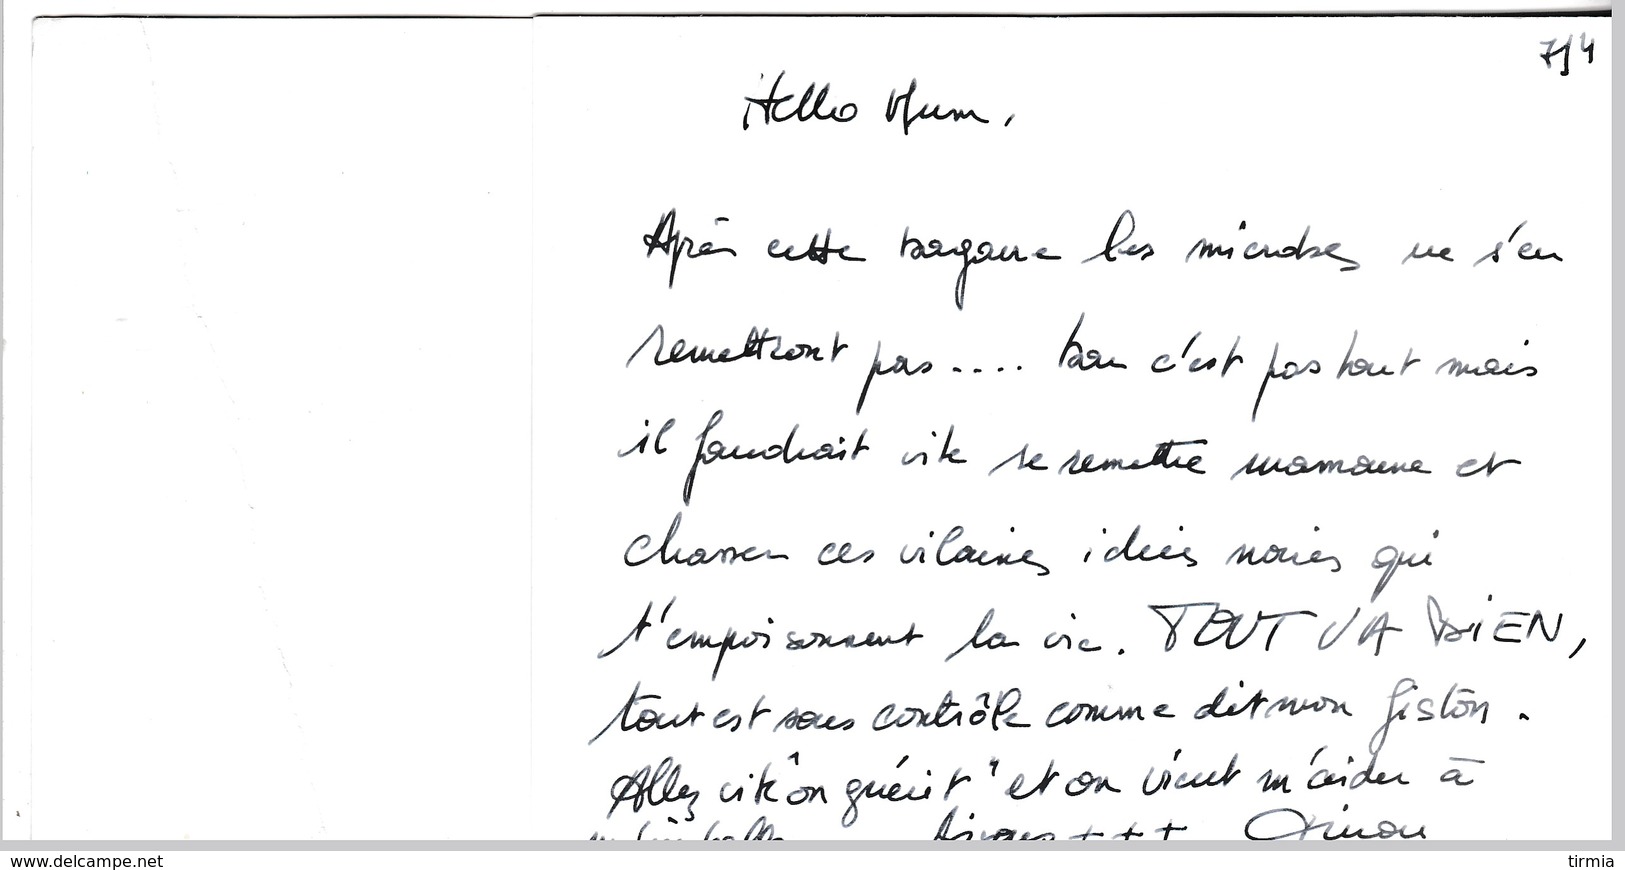 7/4
Hello Mum,
Après cette bagarre les microbes ne s'en
remettront pas.... bon c'est pas tout mais
il faudrait vite se remettre mamane et
chasser ces vilaines idées noires qui
t'empoisonnent la vie. TOUT VA BiEN,
tout est sous contrôle comme dit mon fiston.
Allez vite "on guérit" et on vient m'aider à
Bisous +++
www.delcampe.net
tirmia